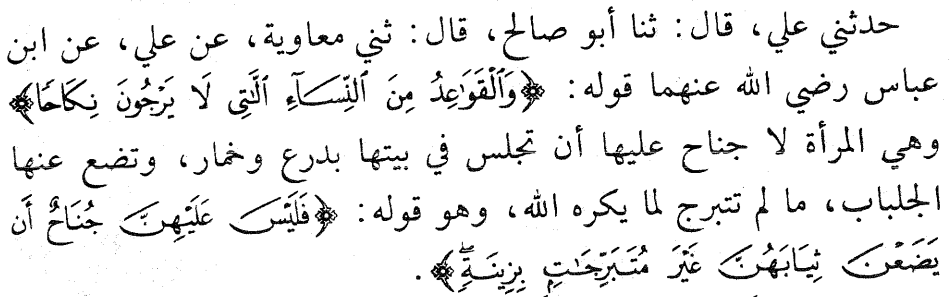 حدثني علي، قال: ثنا أبو صالح، قال: ثني معاوية، عن علي، عن ابن
عباس رضي الله عنهما قوله: ﴿وَٱلْقَوَٰعِدُ مِنَ ٱلنِّسَآءِ ٱلَّٰتِى لَا يَرْجُونَ نِكَاحًا﴾
وهي المرأة لا جناح عليها أن تجلس في بيتها بدرع وخمار، وتضع عنها
الجلباب، ما لم تتبرج لما يكره الله، وهو قوله: ﴿فَلَيْسَ عَلَيْهِنَّ جُنَاحٌ أَن
يَضَعْنَ ثِيَابَهُنَّ غَيْرَ مُتَبَرِّجَٰتٍۭ بِزِينَةٍۖ﴾.